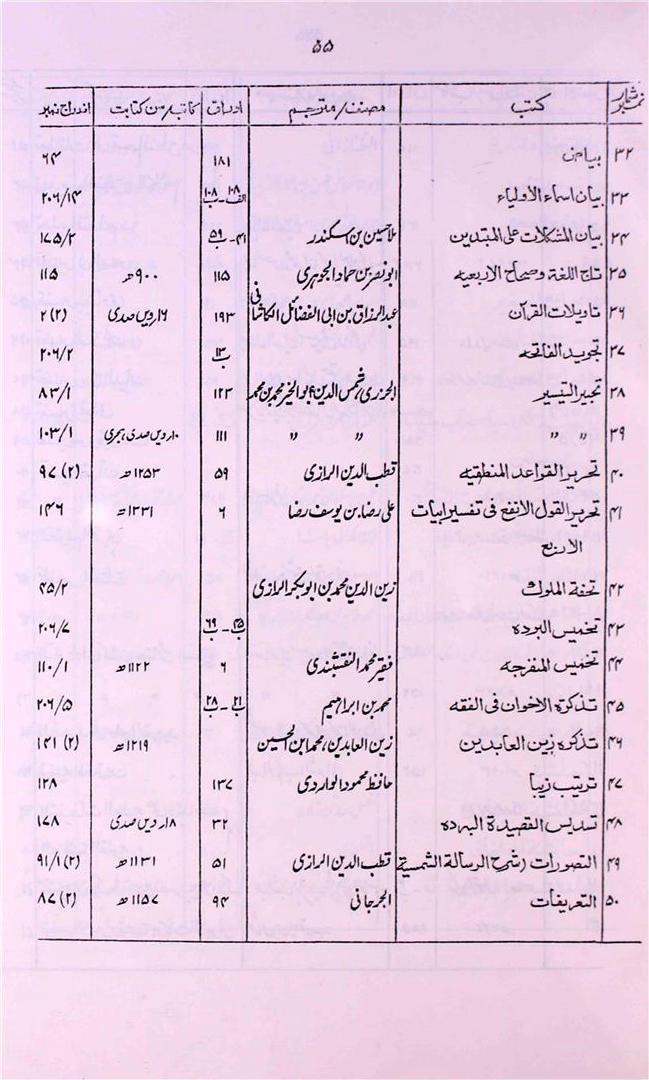 ۵۵
نمبر شمار کتب مصنف/مترجم اوراق کاتب/سن کتابت اندراج نمبر
۳۲ بیاض ۱۸۱ ۶۴
۳۳ بیان اسماء الاولیاء ۲۰۶/۱۴
۳۴ بیان المشکلات علی المبتدین ملا حسین بن اسکندر ۴۱-۵۹ ب ۱۷۵/۲
۳۵ تاج اللغة وصحاح الاربعیه ابونصر بن حماد الجوہری ۱۱۵ ۹۰۰ھ ۱۱۵
۳۶ تاویلات القرآن عبدالرزاق بن ابی الفضائل الکاشانی ۱۹۳ ۱۶ ویں صدی ۲ (۲)
۳۷ تجوید الفاتحه ۱۳ ب ۲۰۶/۲
۳۸ تحبیر التیسیر الجزری، شمس الدین ابوالخیر محمد بن محمد ۱۲۳ ۸۳/۱
۳۹ " " " " ۱۱۱ ۱۰ ویں صدی ہجری ۱۰۳/۱
۴۰ تحریر القواعد المنطقیه قطب الدین الرازی ۵۹ ۱۲۵۳ھ ۹۷ (۲)
۴۱ تحریر القول الانفع فی تفسیر ابیات علی رضا بن یوسف رضا ۶ ۱۲۳۱ھ ۱۴۶
الاربع
۴۲ تحفة الملوک زین الدین محمد بن ابوبکر الرازی ۴۵/۲
۴۳ تخمیس البرده ۴۵ ب-۶۹ ب ۲۰۶/۷
۴۴ تخمیس المنفرجه فقیر محمد النقشبندی ۶ ۱۱۲۲ھ ۱۱۰/۱
۴۵ تذکرة الاخوان فی الفقه محمد بن ابراہیم ۲۱ ب-۲۸ ب ۲۰۶/۵
۴۶ تذکره زین العابدین زین العابدین، محمد ابن الحسین ۱۲۱۹ھ ۱۴۱ (۲)
۴۷ ترتیب زیبا حافظ محمود الواردی ۱۳۷ ۱۲۸
۴۸ تسدیس القصیدة البرده ۳۲ ۱۸ ویں صدی ۱۷۸
۴۹ التصورات (شرح الرسالة الشمسیة قطب الدین الرازی ۵۱ ۱۱۳۱ھ ۹۱/۱ (۲)
۵۰ التعریفات الجرجانی ۹۴ ۱۱۵۷ھ ۸۷ (۲)